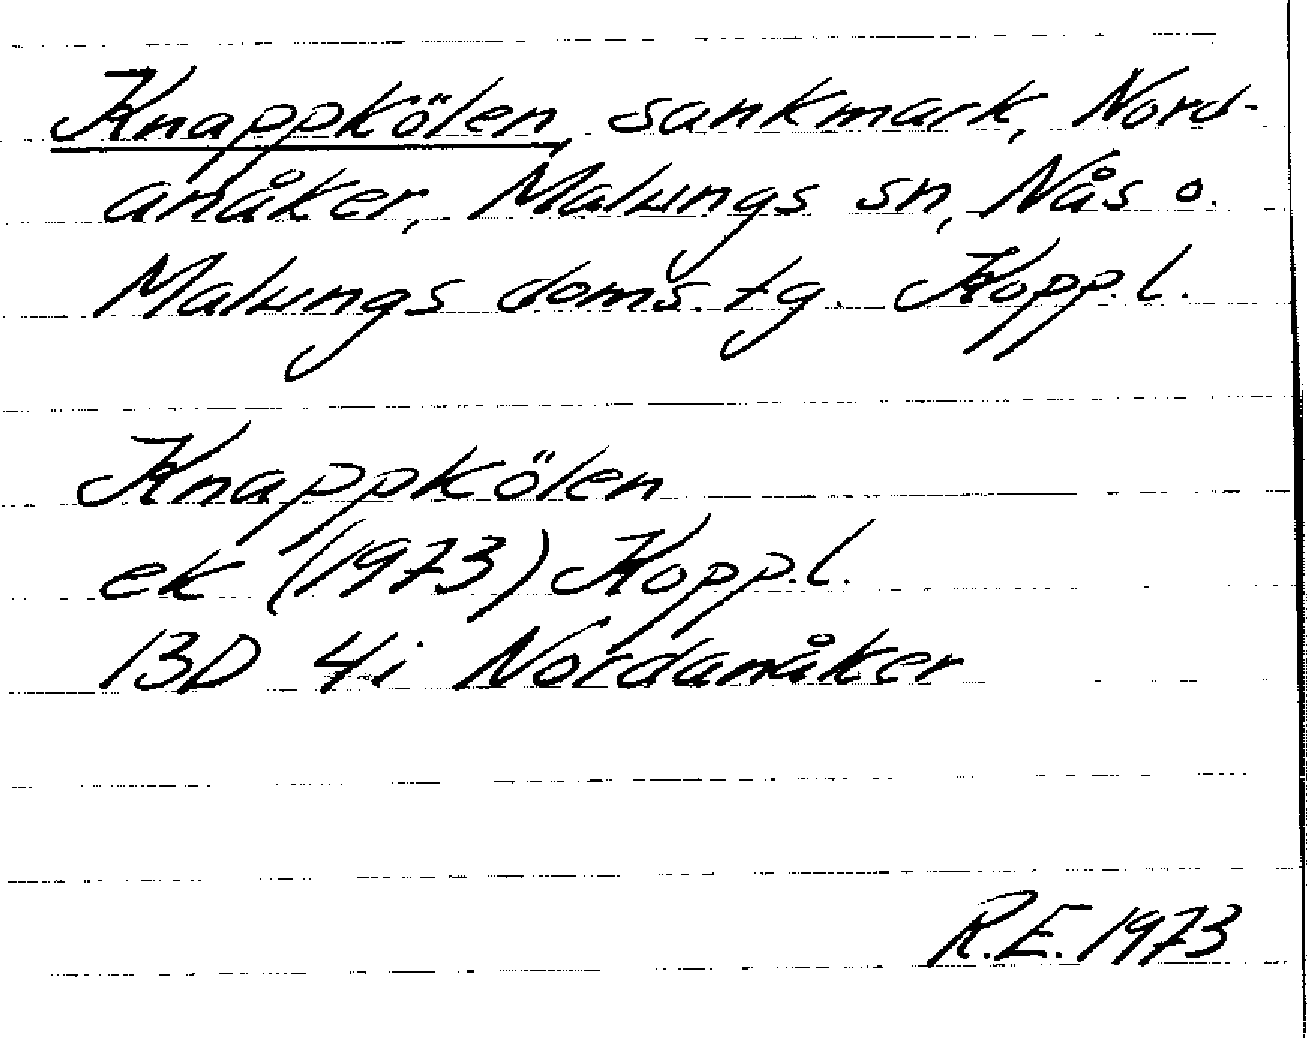 Knappkölen, sankmark, Nord-
anåker, Malungs sn, Nås o.
Malungs doms. tg. Kopp. l.
Knappkölen
ek (1973) Kopp. l.
13D 4i Nordanåker
R.E. 1973